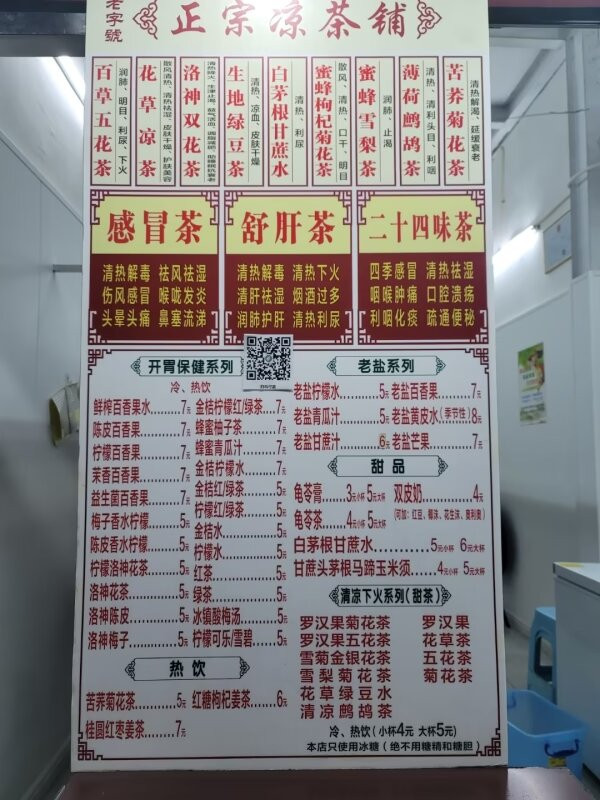 老字號
正宗凉茶铺
百草五花茶
润肺、明目、利尿、下火
花草凉茶
散风清热、清热祛湿、皮肤干燥、护肤美容
洛神双花茶
生地绿豆茶
清热、凉血、皮肤干燥
白茅根甘蔗水
清热、利尿
蜜蜂枸杞菊花茶
散风、清热、口干、明目
蜜蜂雪梨茶
润肺、止渴
薄荷鹧鸪茶
清热、清利头目、利咽
苦荞菊花茶
清热解渴、延缓衰老
感冒茶
清热解毒 祛风祛湿
伤风感冒 喉咙发炎
头晕头痛 鼻塞流涕
舒肝茶
清热解毒 清热下火
清肝祛湿 烟酒过多
润肺护肝 清热利尿
二十四味茶
四季感冒 清热祛湿
咽喉肿痛 口腔溃疡
利咽化痰 疏通便秘
开胃保健系列
冷、热饮
鲜榨百香果水......7元
陈皮百香果........7元
柠檬百香果........7元
茉香百香果........7元
益生菌百香果......7元
梅子香水柠檬......5元
陈皮香水柠檬......5元
柠檬洛神花茶......5元
洛神花茶..........5元
洛神陈皮..........5元
洛神梅子..........5元
金桔柠檬红/绿茶...7元
蜂蜜柚子茶........7元
蜂蜜青瓜汁........7元
金桔柠檬水........7元
金桔红/绿茶.......5元
柠檬红/绿茶.......5元
金桔水............5元
柠檬水............5元
红茶..............5元
绿茶..............5元
冰镇酸梅汤........5元
柠檬可乐/雪碧.....5元
热饮
苦荞菊花茶........5元
桂圆红枣姜茶......7元
红糖枸杞姜茶......6元
老盐系列
老盐柠檬水........5元
老盐青瓜汁........5元
老盐甘蔗汁........6元
老盐百香果........7元
老盐黄皮水(季节性)8元
老盐芒果..........7元
甜品
龟苓膏......3元小杯 5元大杯
龟苓茶......4元小杯 5元大杯
双皮奶............4元
(可加：红豆、椰沫、花生沫、奥利奥)
白茅根甘蔗水............5元小杯 6元大杯
甘蔗头茅根马蹄玉米须......4元小杯 5元大杯
清凉下火系列(甜茶)
罗汉果菊花茶
罗汉果五花茶
雪菊金银花茶
雪梨菊花茶
花草绿豆水
清凉鹧鸪茶
罗汉果
花草茶
五花茶
菊花茶
冷、热饮(小杯4元 大杯5元)
本店只使用冰糖(绝不用糖精和糖胆)